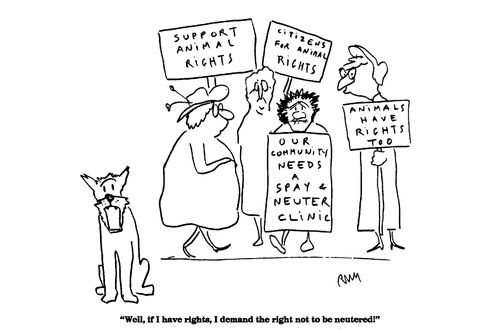 SUPPORT
ANIMAL
RIGHTS
CITIZENS
FOR ANIMAL
RIGHTS
ANIMALS
HAVE
RIGHTS
TOO
OUR
COMMUNITY
NEEDS
A
SPAY &
NEUTER
CLINIC
"Well, if I have rights, I demand the right not to be neutered!"